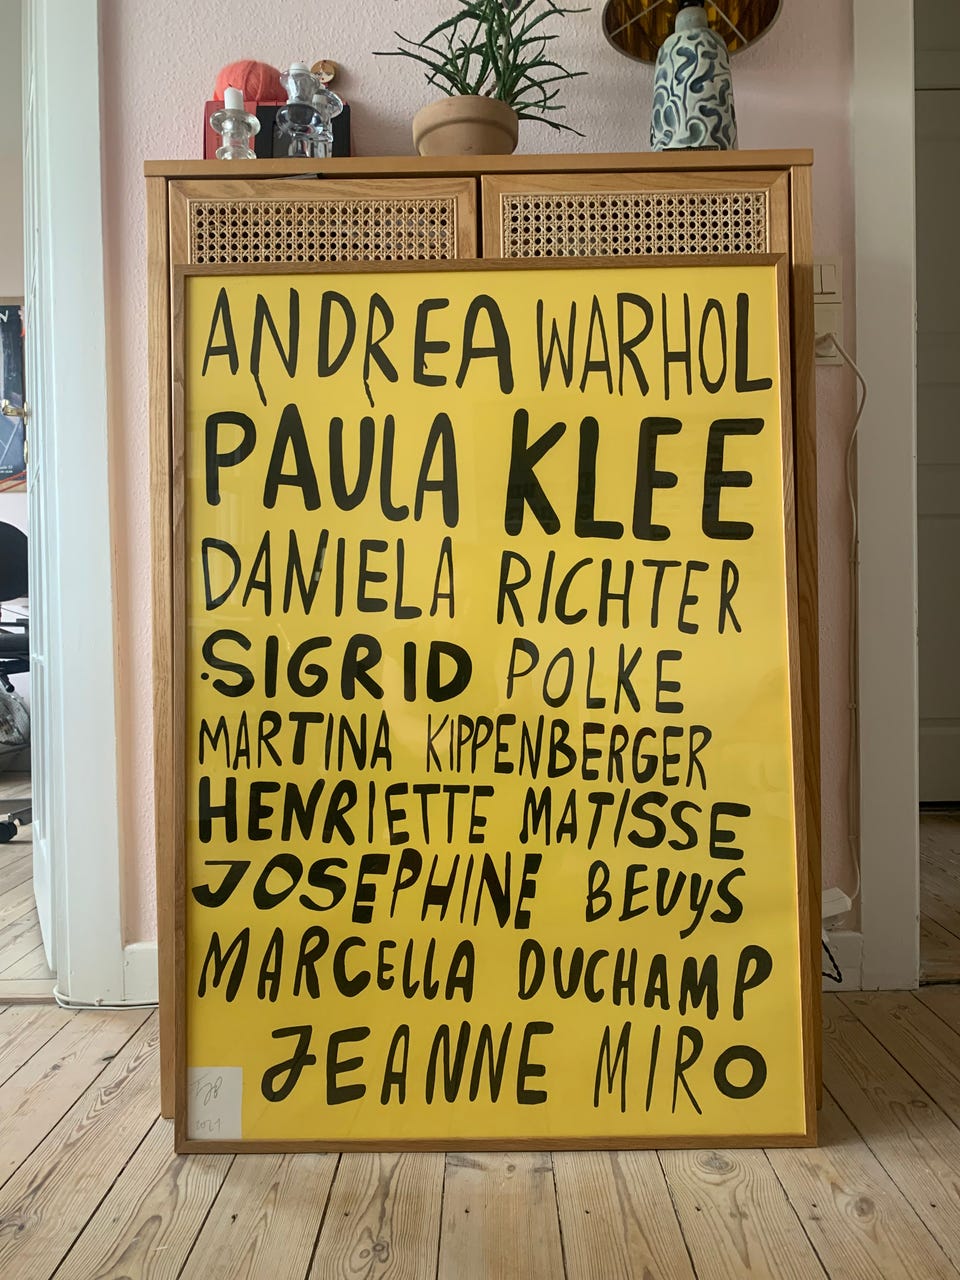 ANDREA WARHOL
PAULA KLEE
DANIELA RICHTER
SIGRID POLKE
MARTINA KIPPENBERGER
HENRIETTE MATISSE
JOSEPHINE BEUyS
MARCELLA DUCHAMP
JEANNE MIRO
2021